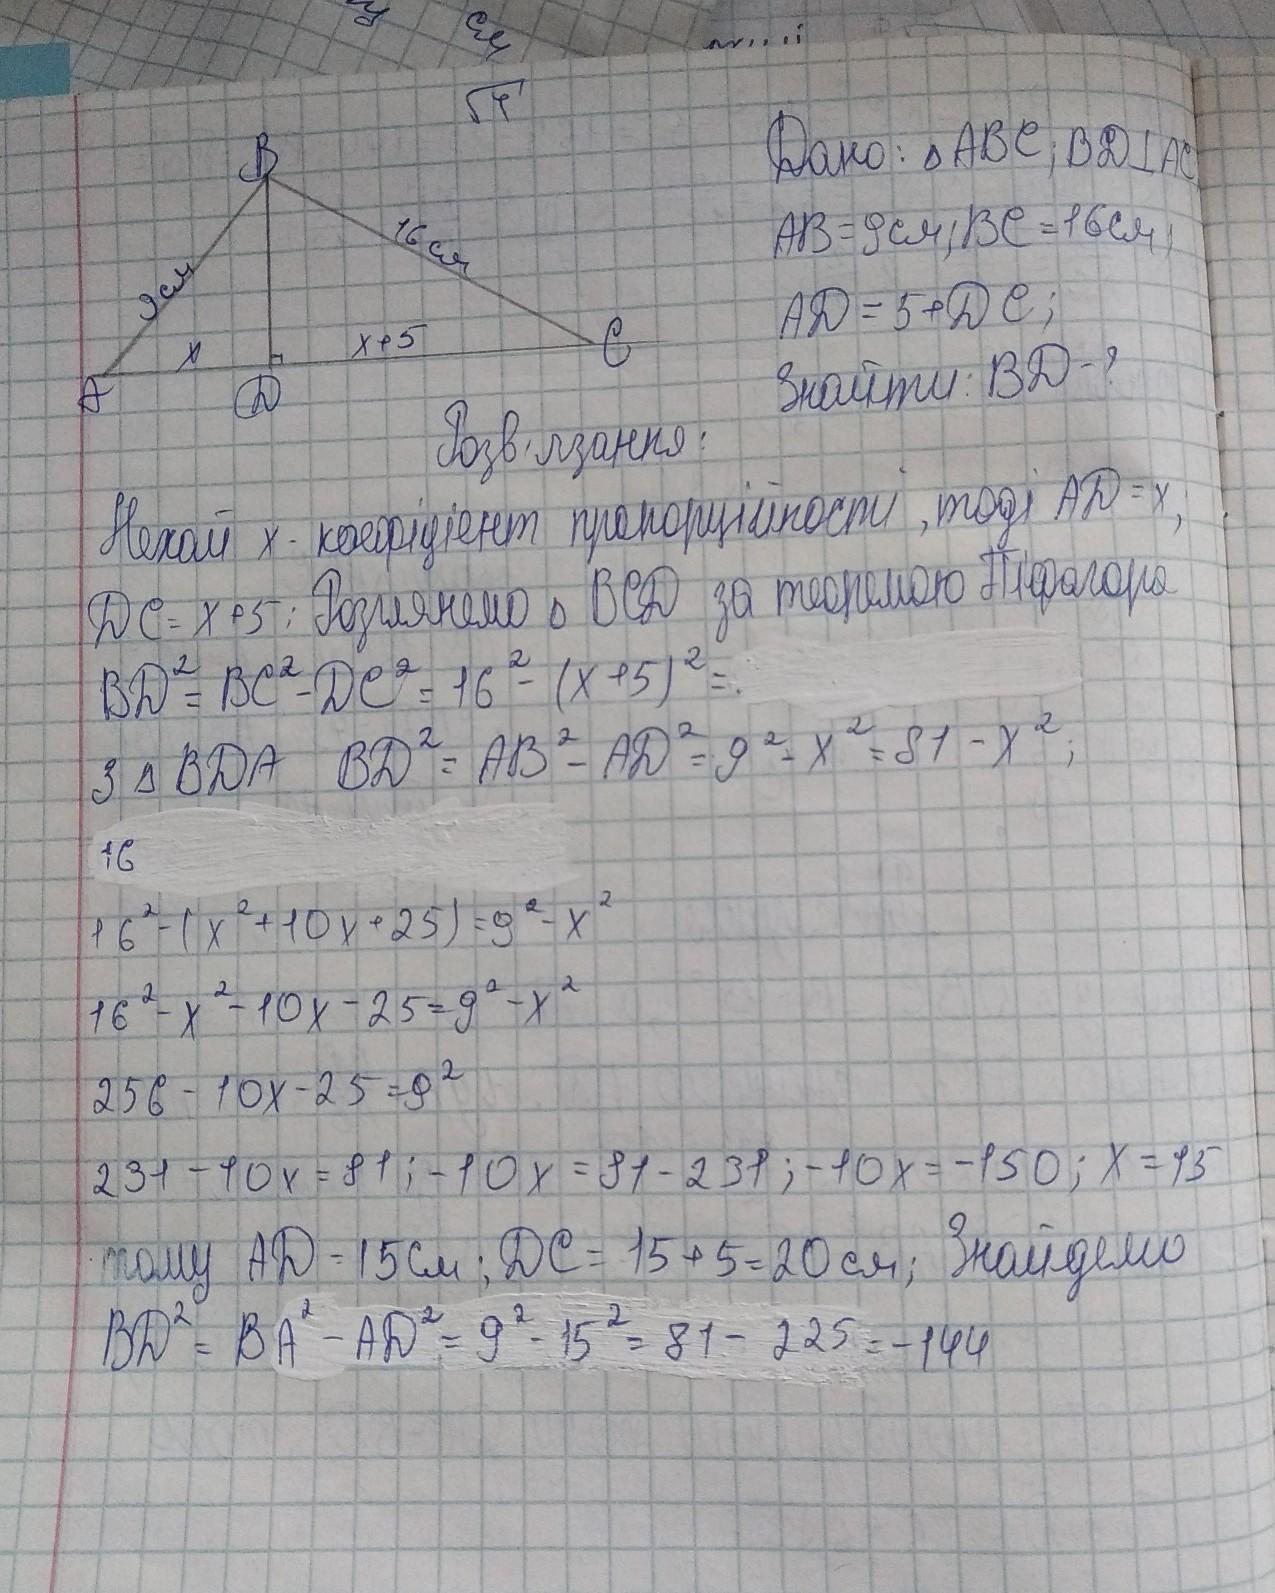 см
√4
B
Дано: △ABC; BD⊥AC
16см
AB=9см; BC=16см;
9см
AD=5+DC;
x
x+5
C
A
D
Знайти: BD-?
Розв'язання:
Нехай x - коефіцієнт пропорційності, тоді AD=x;
DC=x+5; Розглянемо △ BCD за теоремою Піфагора
BD²=BC²-DC²=16²-(x+5)²=.
З △ BDA BD²=AB²-AD²=9²-x²=81-x²;
16
16²-(x²+10x+25)=9²-x²
16²-x²-10x-25=9²-x²
256-10x-25=9²
231-10x=81; -10x=81-231; -10x=-150; x=15
тому AD=15см; DC=15+5=20см; Знайдемо
BD²=BA²-AD²=9²-15²=81-225=-144